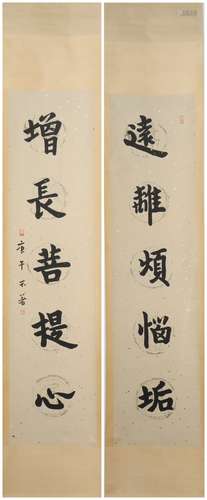 遠離煩惱垢
增長菩提心
庚午 不著